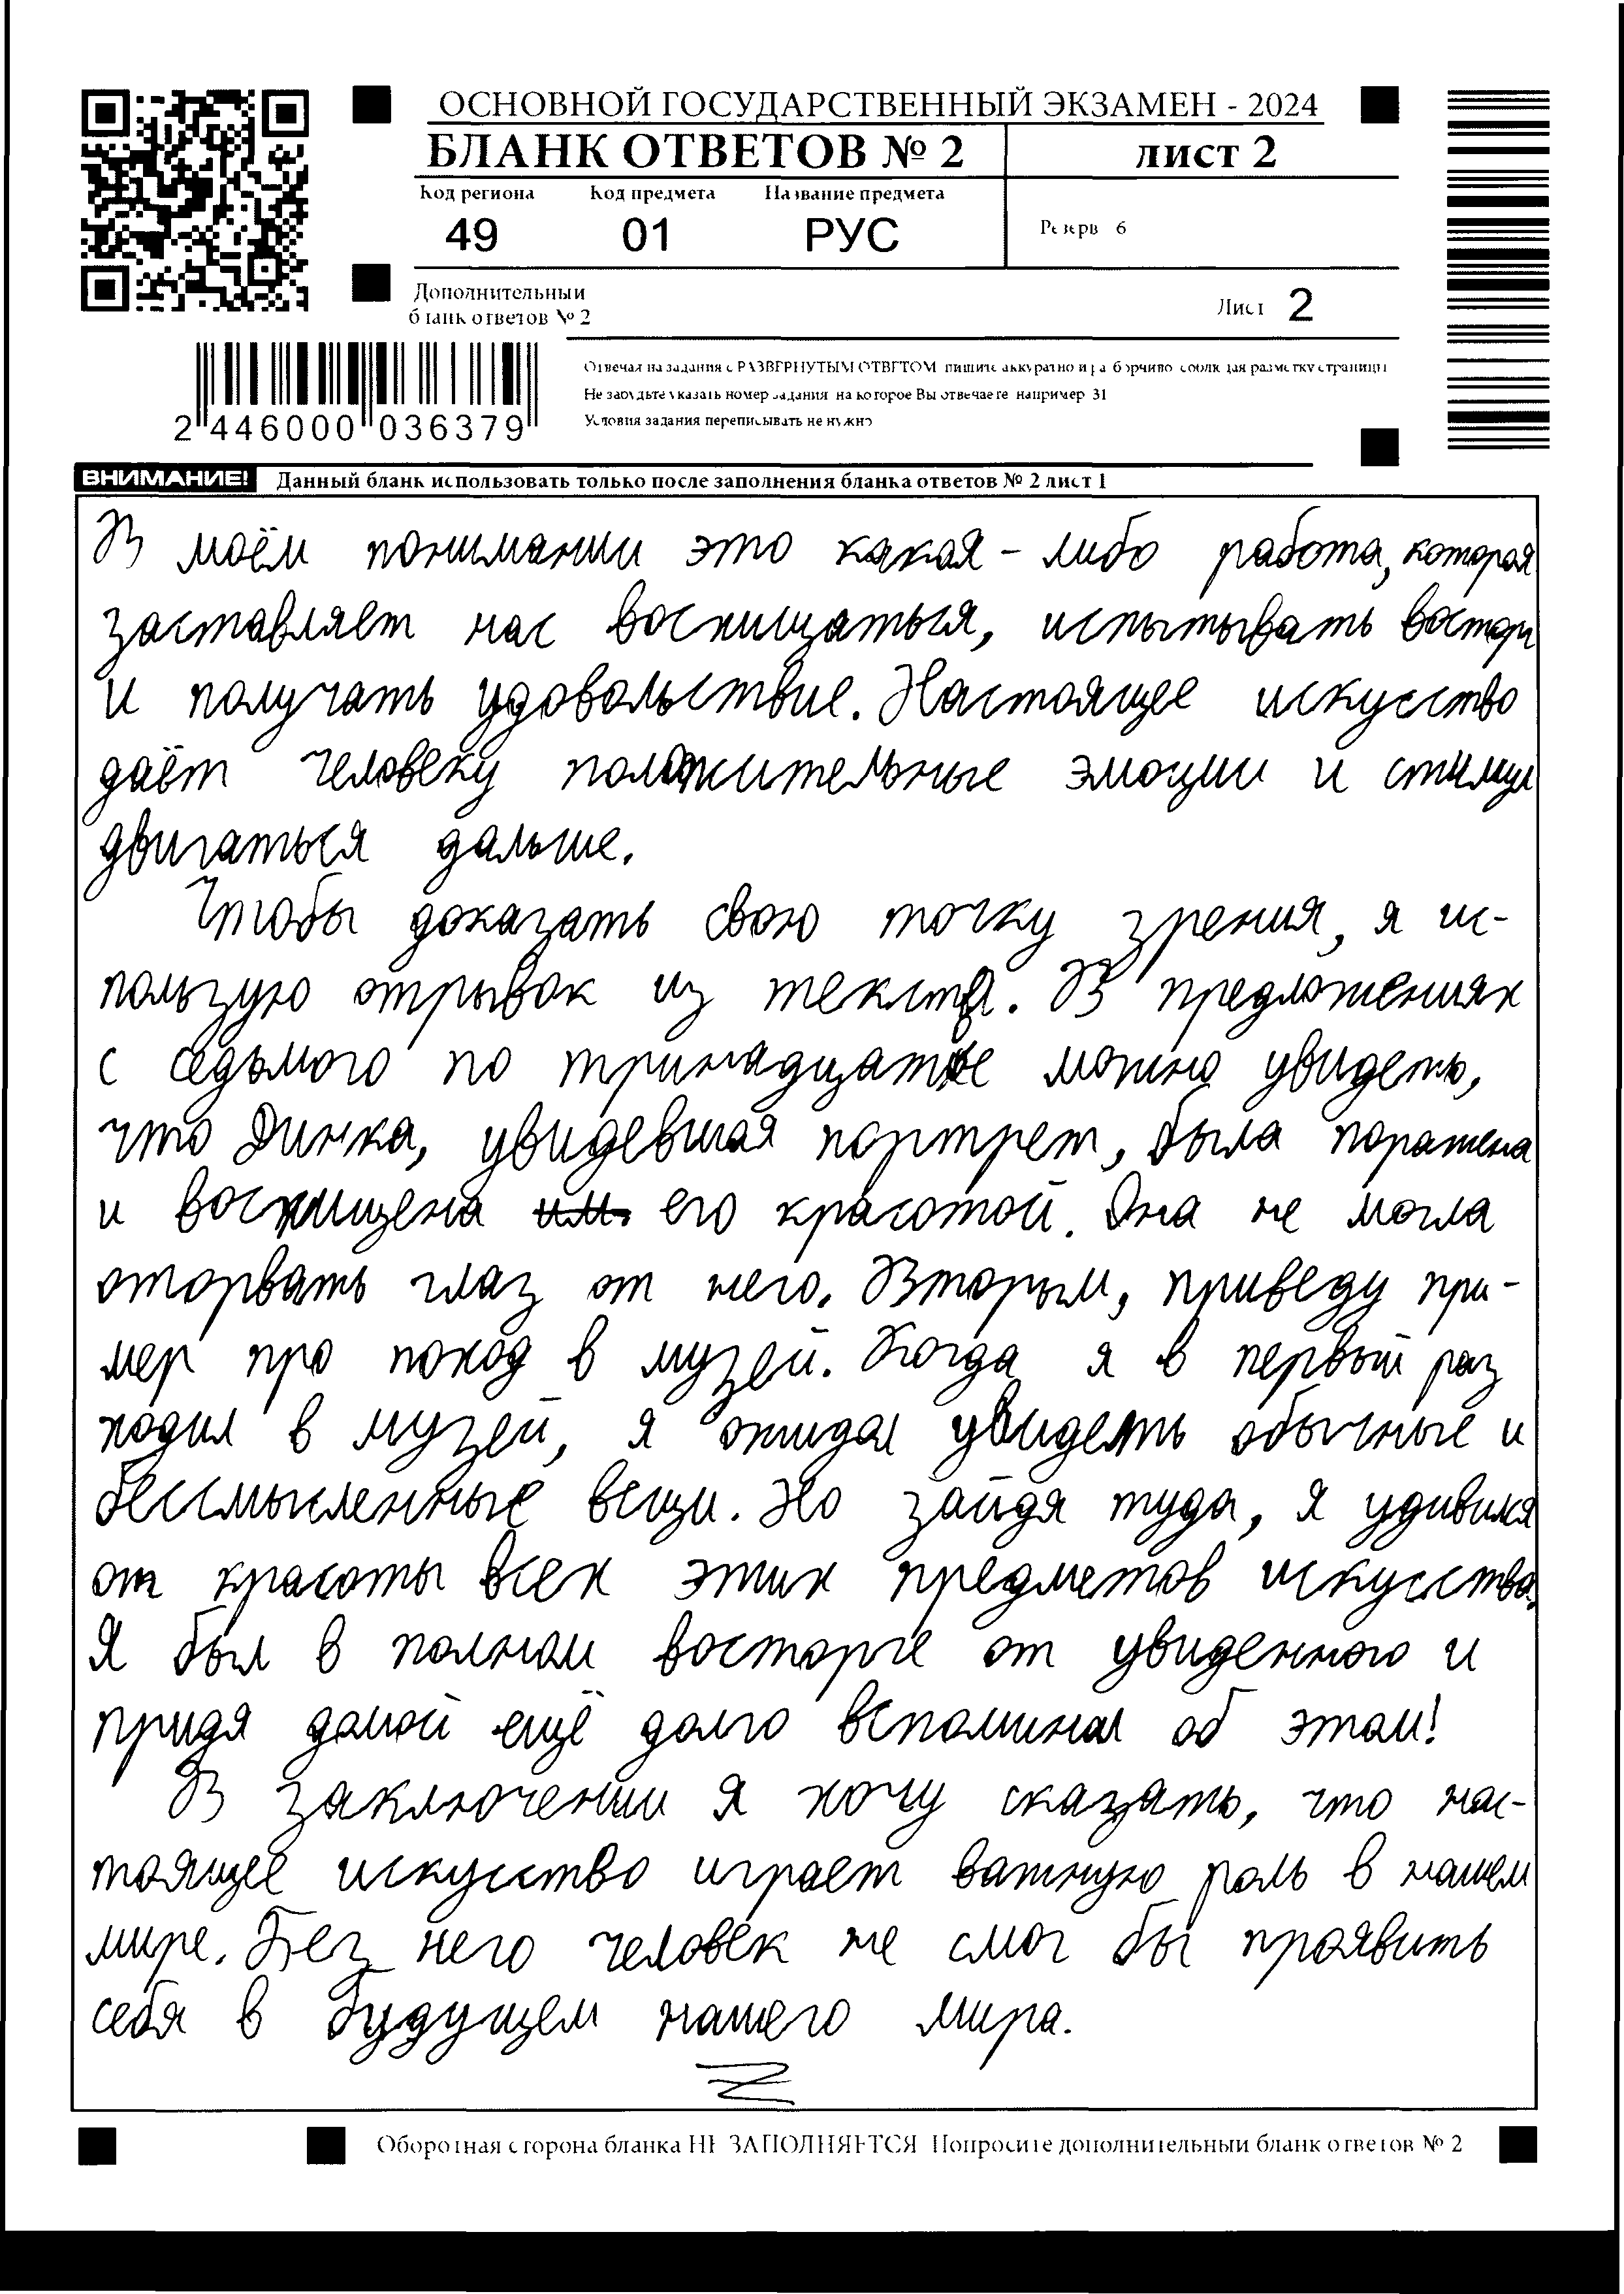 ОСНОВНОЙ ГОСУДАРСТВЕННЫЙ ЭКЗАМЕН - 2024
БЛАНК ОТВЕТОВ № 2
ЛИСТ 2
Код региона Код предмета Название предмета
49 01 РУС
Резерв 6
Дополнительный
бланк ответов № 2
Лист 2
2 446000 036379
Отвечая на задания с РАЗВЕРНУТЫМ ОТВЕТОМ пишите аккуратно и разборчиво соблюдая разметку страницы
Не забудьте указать номер задания на которое Вы отвечаете например 31
Условия задания переписывать не нужно
ВНИМАНИЕ! Данный бланк использовать только после заполнения бланка ответов № 2 лист 1
В моём понимании это какая-либо работа, которая
заставляет нас восхищаться, испытывать восторг
и получать удовольствие. Настоящее искусство
даёт человеку положительные эмоции и стимул
двигаться дальше.
Чтобы доказать свою точку зрения, я ис-
пользую отрывок из текста. В предложениях
с седьмого по тринадцатое можно увидеть,
что Динка, увидевшая портрет, была поражена
и восхищена им. его красотой. Она не могла
оторвать глаз от него. Вторым, приведу при-
мер про поход в музей. Когда я в первый раз
ходил в музей, я ожидал увидеть обычные и
бессмысленные вещи. Но зайдя туда, я удивился
от красоты всех этих предметов искусства.
Я был в полном восторге от увиденного и
придя домой ещё долго вспоминал об этом!
В заключении я хочу сказать, что нас-
тоящее искусство играет важную роль в нашем
мире. Без него человек не смог бы проявить
себя в будущем нашего мира.
Оборотная сторона бланка НЕ ЗАПОЛНЯЕТСЯ Попросите дополнительный бланк ответов № 2